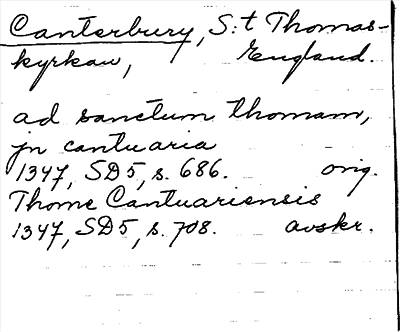 Canterbury, S:t Thomas-
kyrkan, England.
ad sanctum thomam,
jn cantuaria
1347, SD5, s. 686. orig.
Thome Cantuariensis
1347, SD5, s. 708. avskr.